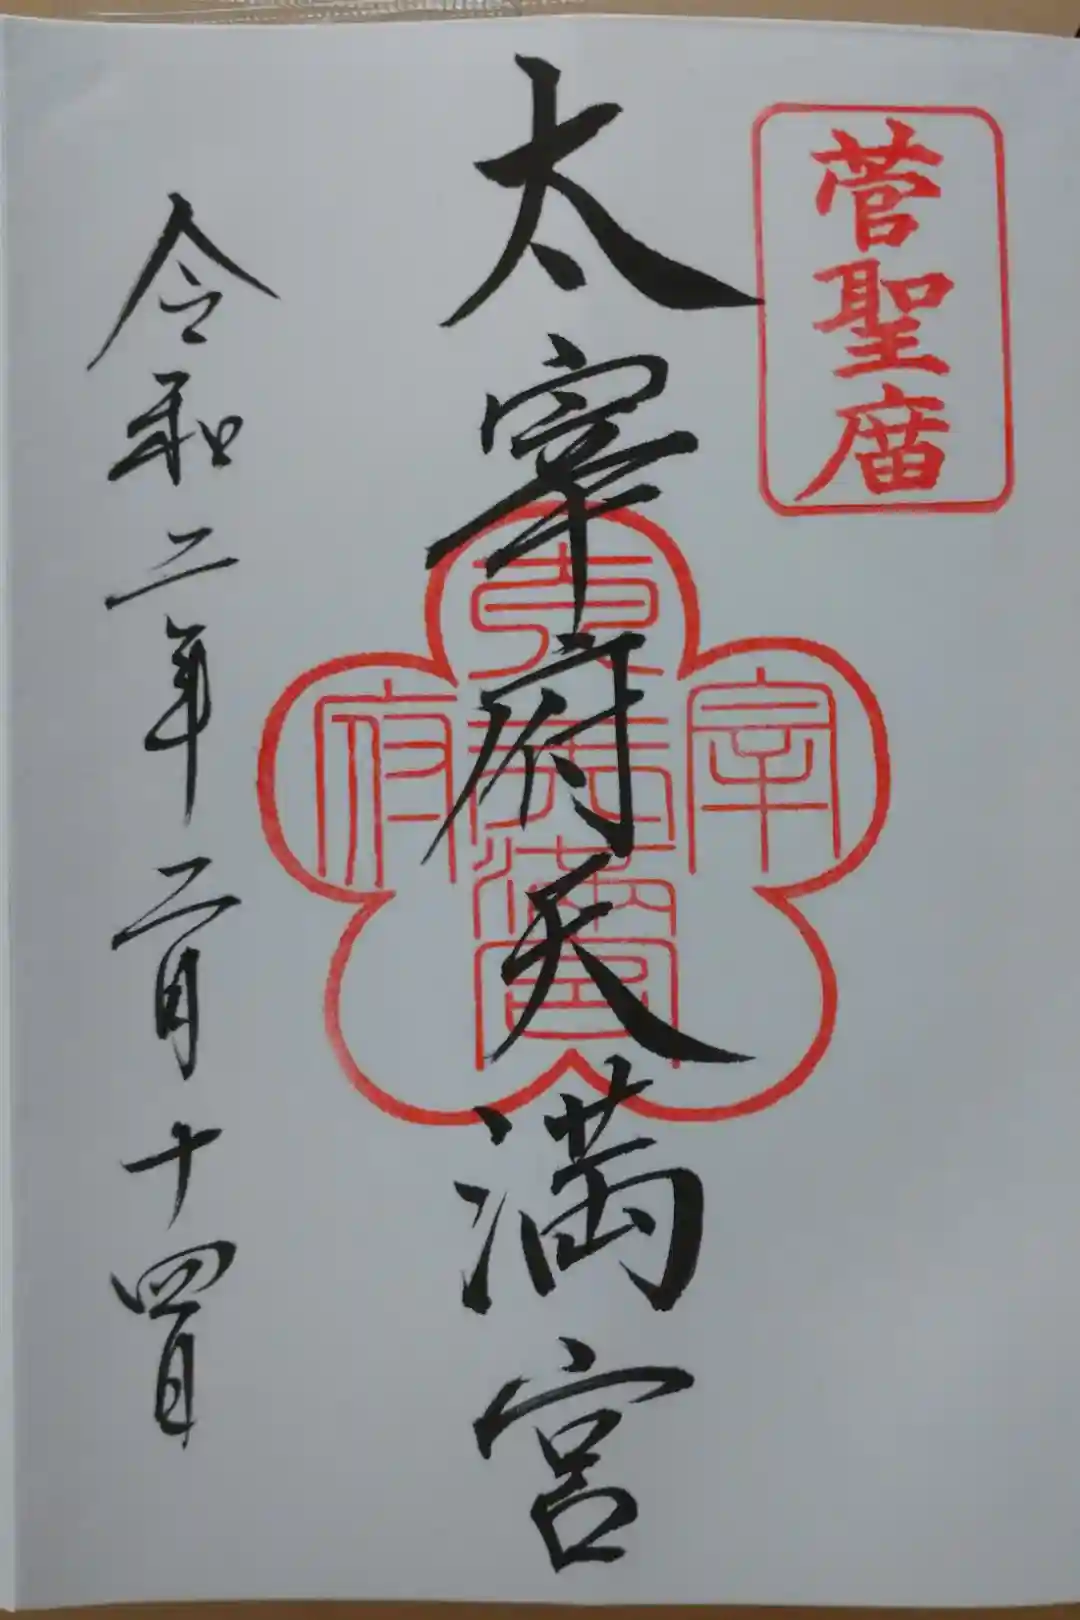 菅聖庿
太宰府天満宮
太宰府天満宮
令和二年二月十四日